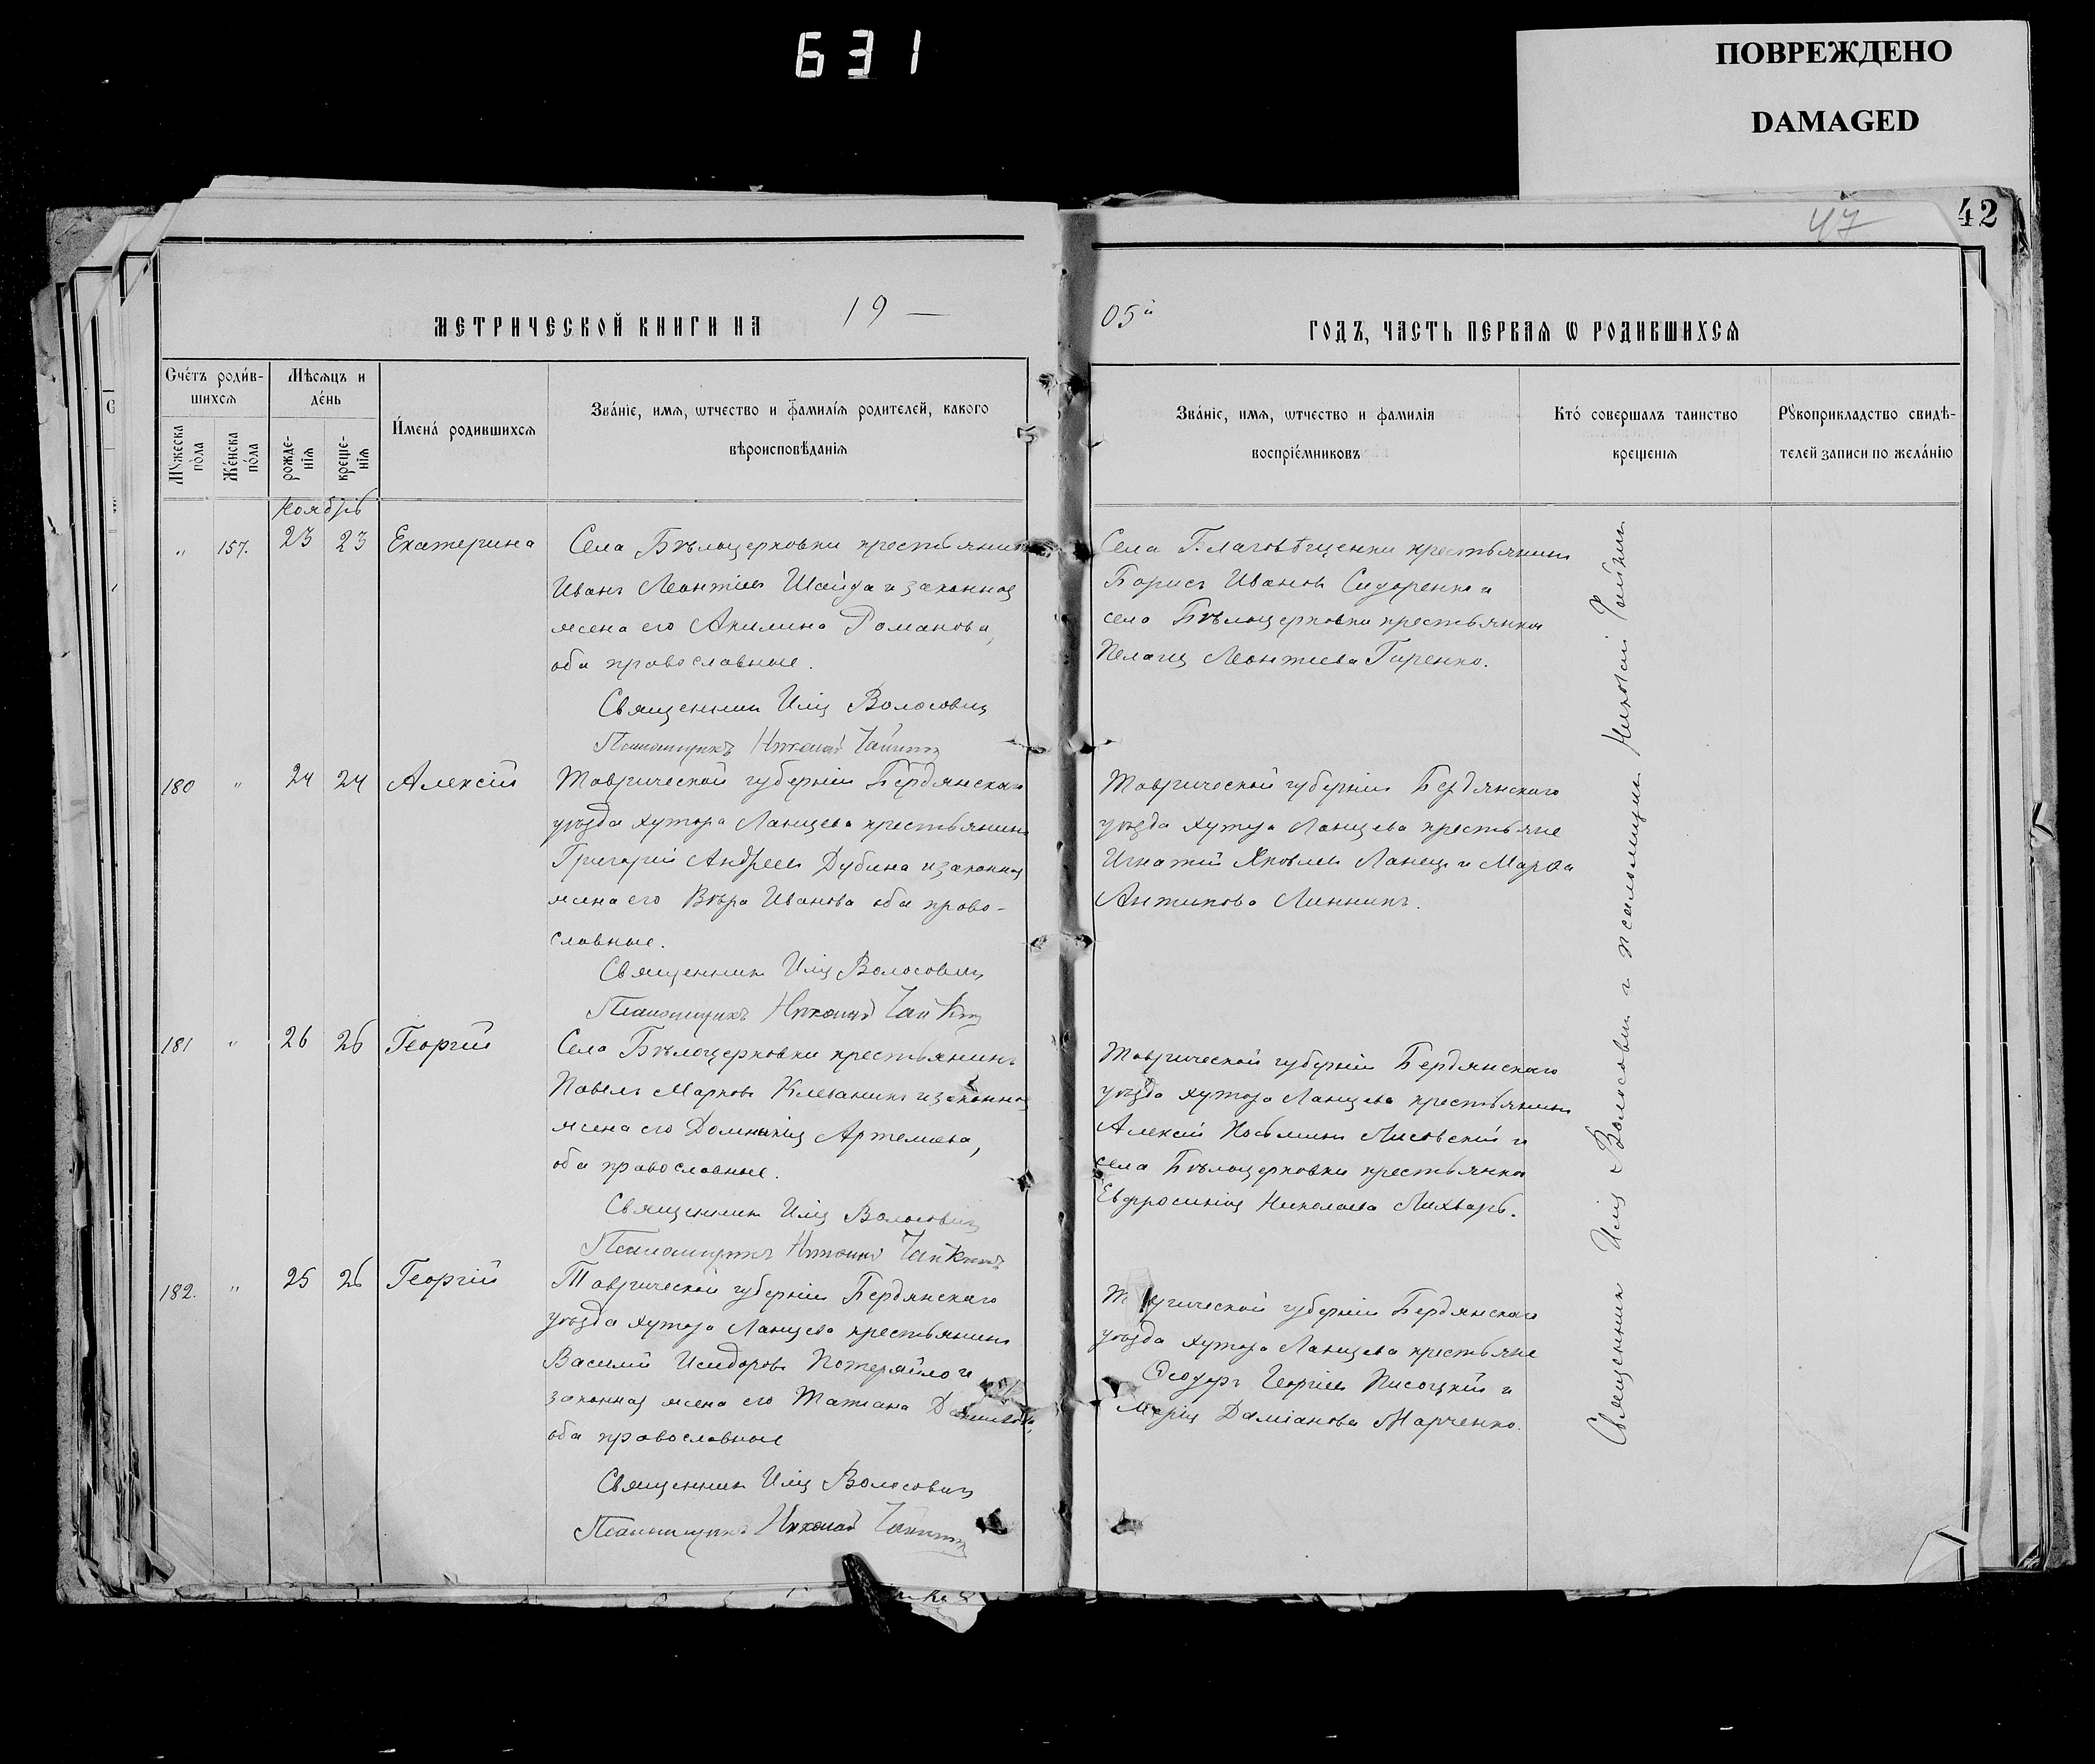 631
ПОВРЕЖДЕНО
DAMAGED
42
47
МЕТРИЧЕСКОЙ КНИГИ НА 19 —
05й
ГОДЪ, ЧАСТЬ ПЕРВАЯ Ѡ РОДИВШИХСЯ
Счетъ родив-
шихся
Мѣсяцъ и
день
Мужеска
пола
Женска
пола
рожде-
нія
креще-
нія
Имена родившихся
Званіе, имя, ѡтчество и фамилія родителей, какого
вѣроисповѣданія
Званіе, имя, ѡтчество и фамилія
воспріемниковъ
Кто совершалъ таинство
крещенія
Рукоприкладство свидѣ-
телей записи по желанію
Ноябрь
" 157. 23 23 Екатерина
Села Бѣлоцерковки крестьянинъ
Иванъ Леонтіевъ Шайда и законная
жена его Акилина Романова,
оба православные.
Священникъ Илія Волосовичъ
Псаломщикъ Николай
Села Благовѣщенки крестьянинъ
Борисъ Ивановъ Сидоренко и
села Бѣлоцерковки крестьянка
Пелагія Леонтіева Гиренко.
180 " 24 24 Алексій
Таврической губерніи Бердянскаго
уѣзда хутора Ланцева крестьянинъ
Григорій Андреевъ Дубина и законная
жена его Вѣра Иванова оба право-
славные.
Священникъ Илія Волосовичъ
Псаломщикъ Николай
Таврической губерніи Бердянскаго
уѣзда хутора Ланцева крестьяне
Игнатій Яковлевъ Ланец и Марѳа
Антипова Линникъ.
181 " 26 26 Георгій
Села Бѣлоцерковки крестьянинъ
Павелъ Марковъ и законная
жена его Домникія Артемова,
оба православные.
Священникъ Илія Волосовичъ
Псаломщикъ Николай
Таврической губерніи Бердянскаго
уѣзда хутора Ланцева крестьянинъ
Алексій Косьминъ Лисовскій и
села Бѣлоцерковки крестьянка
Евфросинія Николаева Лихварь.
182. " 25 26 Георгій
Таврической губерніи Бердянскаго
уѣзда хутора Ланцева крестьянинъ
Василій Исидоровъ Потеряйло и
законная жена его Татіана
оба православные
Священникъ Илія Волосовичъ
Псаломщикъ Николай
Таврической губерніи Бердянскаго
уѣзда хутора Ланцева крестьяне
Ѳеодоръ Георгіевъ Писоцкій и
Марія Даміанова Марченко.
Священникъ Илія Волосовичъ и псаломщикъ Николай